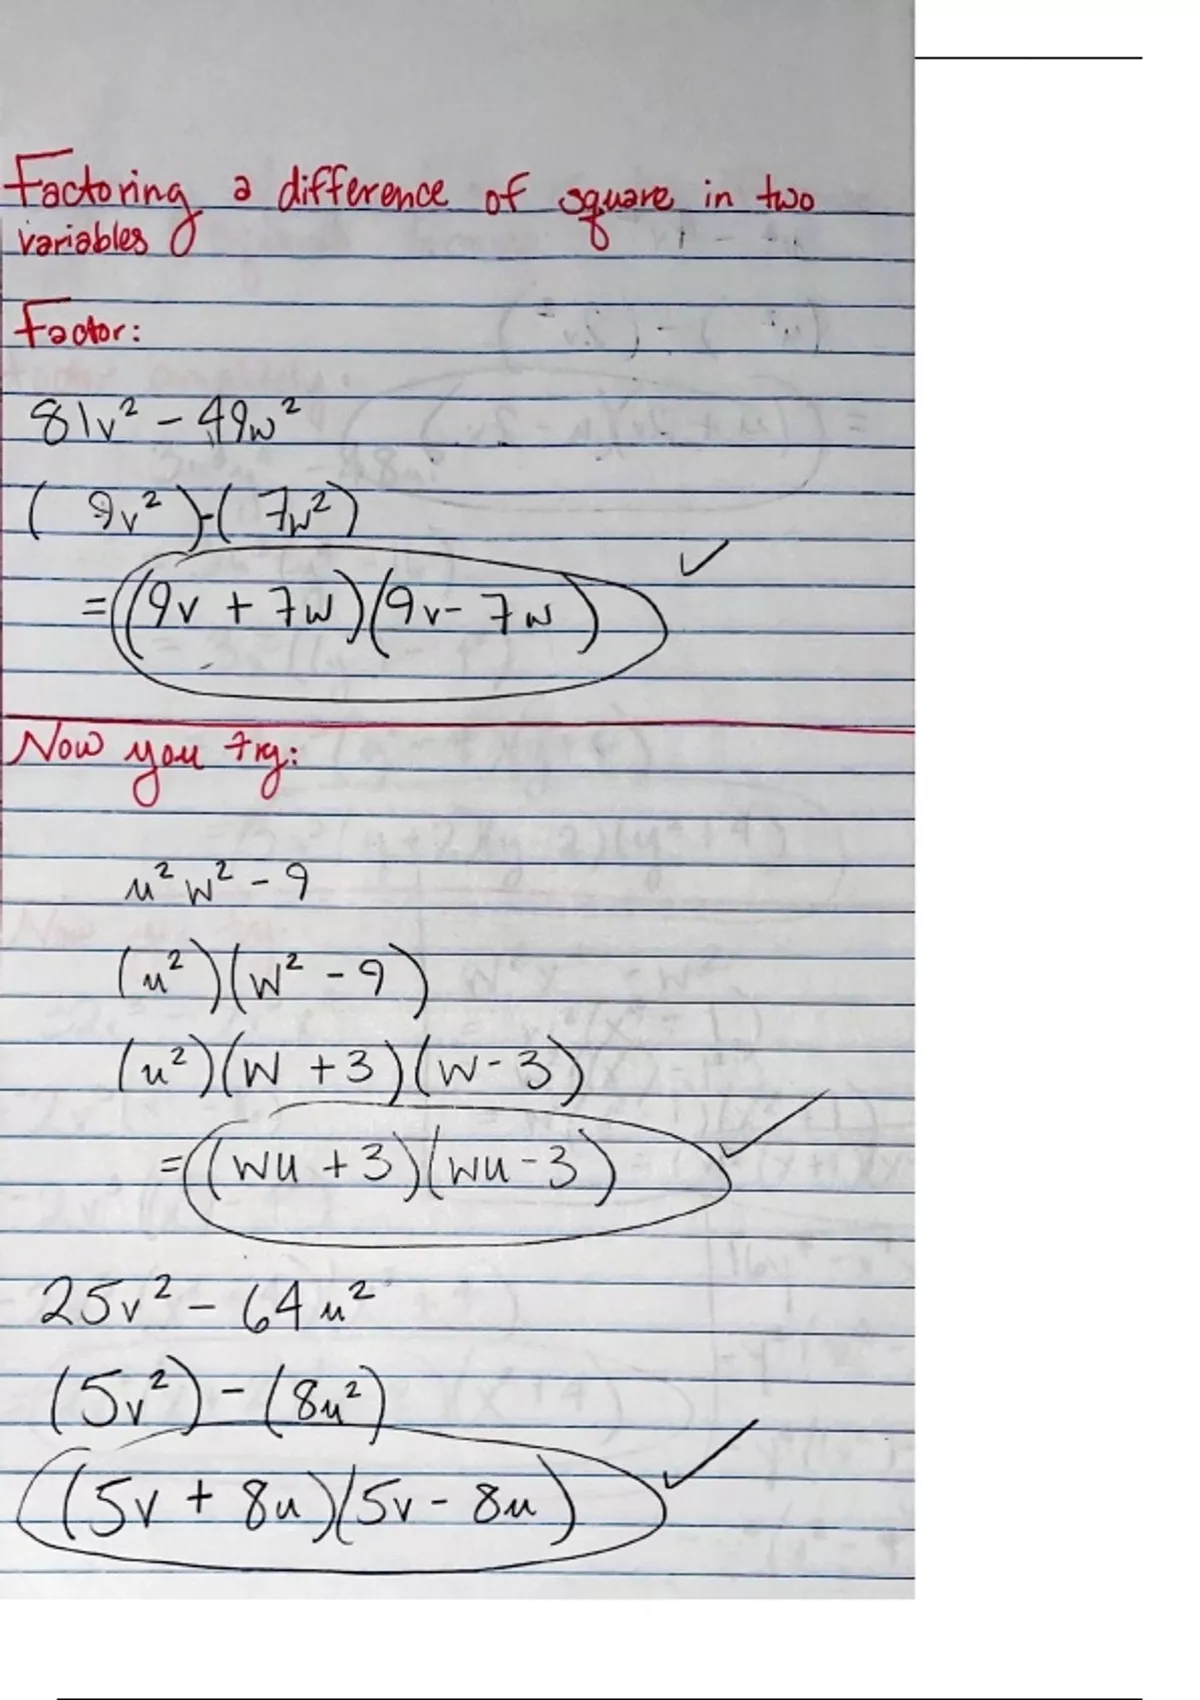 Factoring a difference of square in two
variables
Factor:
81v² - 49w²
( 9v² )-( 7w²)
= (9v + 7w)(9v- 7w)
Now you try:
u²w² - 9
(u²)(w² - 9)
(u²)(w + 3)(w- 3)
= (wu + 3)(wu - 3)
25v² - 64u²
(5v²) - (8u²)
(5v + 8u)(5v - 8u)